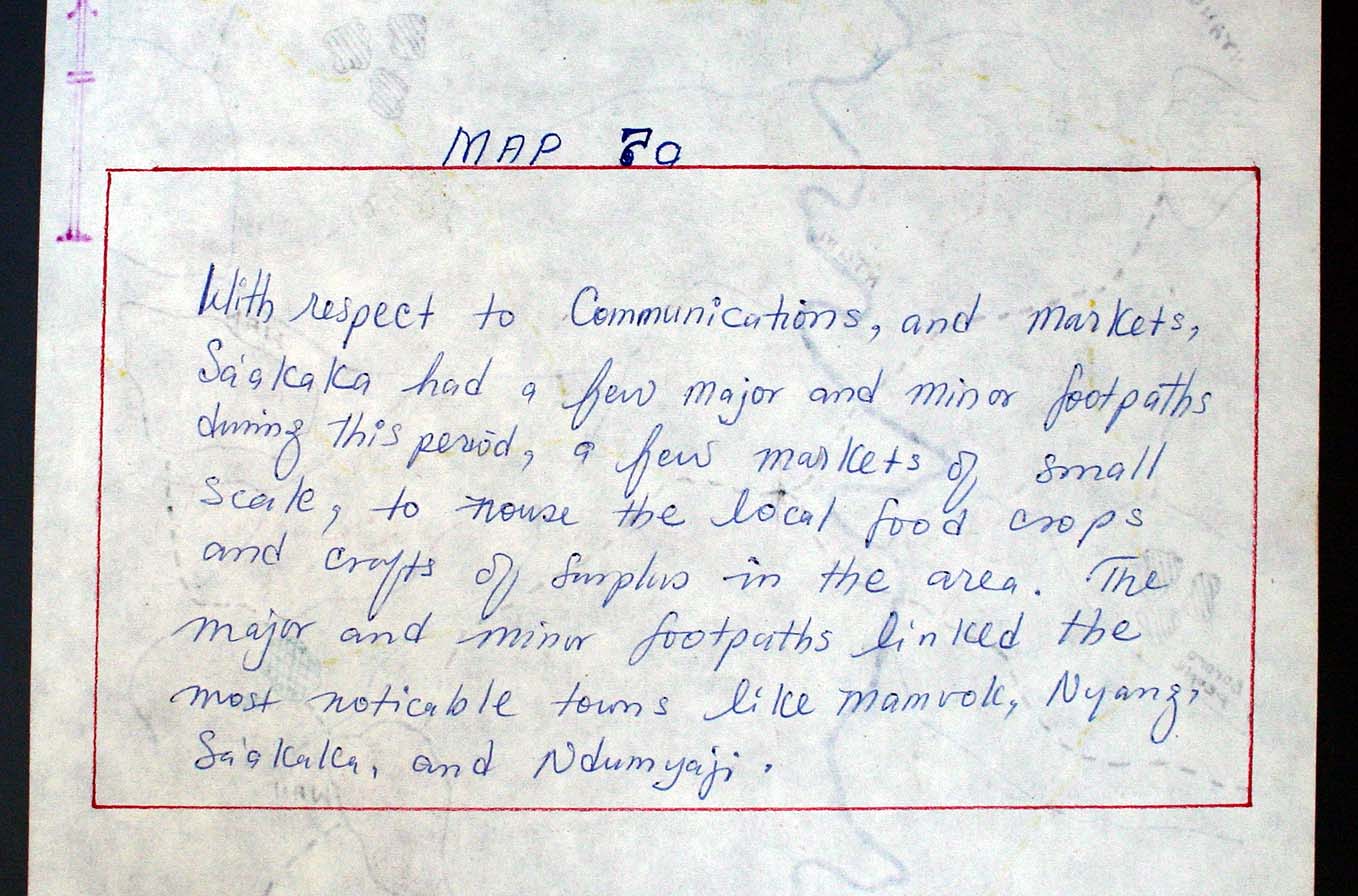 MAP 70
With respect to Communications, and markets,
Sa'akaka had a few major and minor footpaths
during this period, a few markets of small
scale, to house the local food crops
and crafts of surplus in the area. The
major and minor footpaths linked the
most noticable towns like mamvok, Nyang,
Sa'akaka, and Ndumyaji.